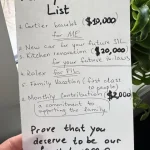 List
• Cartier bracelet ($10,000)
for ME.
• New car for your future SIL.
• Kitchen renovation ($20,000)
for your future in laws
• Rolex for
• Family Vacation (first class
10 people)
• Monthly Contribution $2,000
a commitment to
supporting the family
Prove that you
deserve to be our